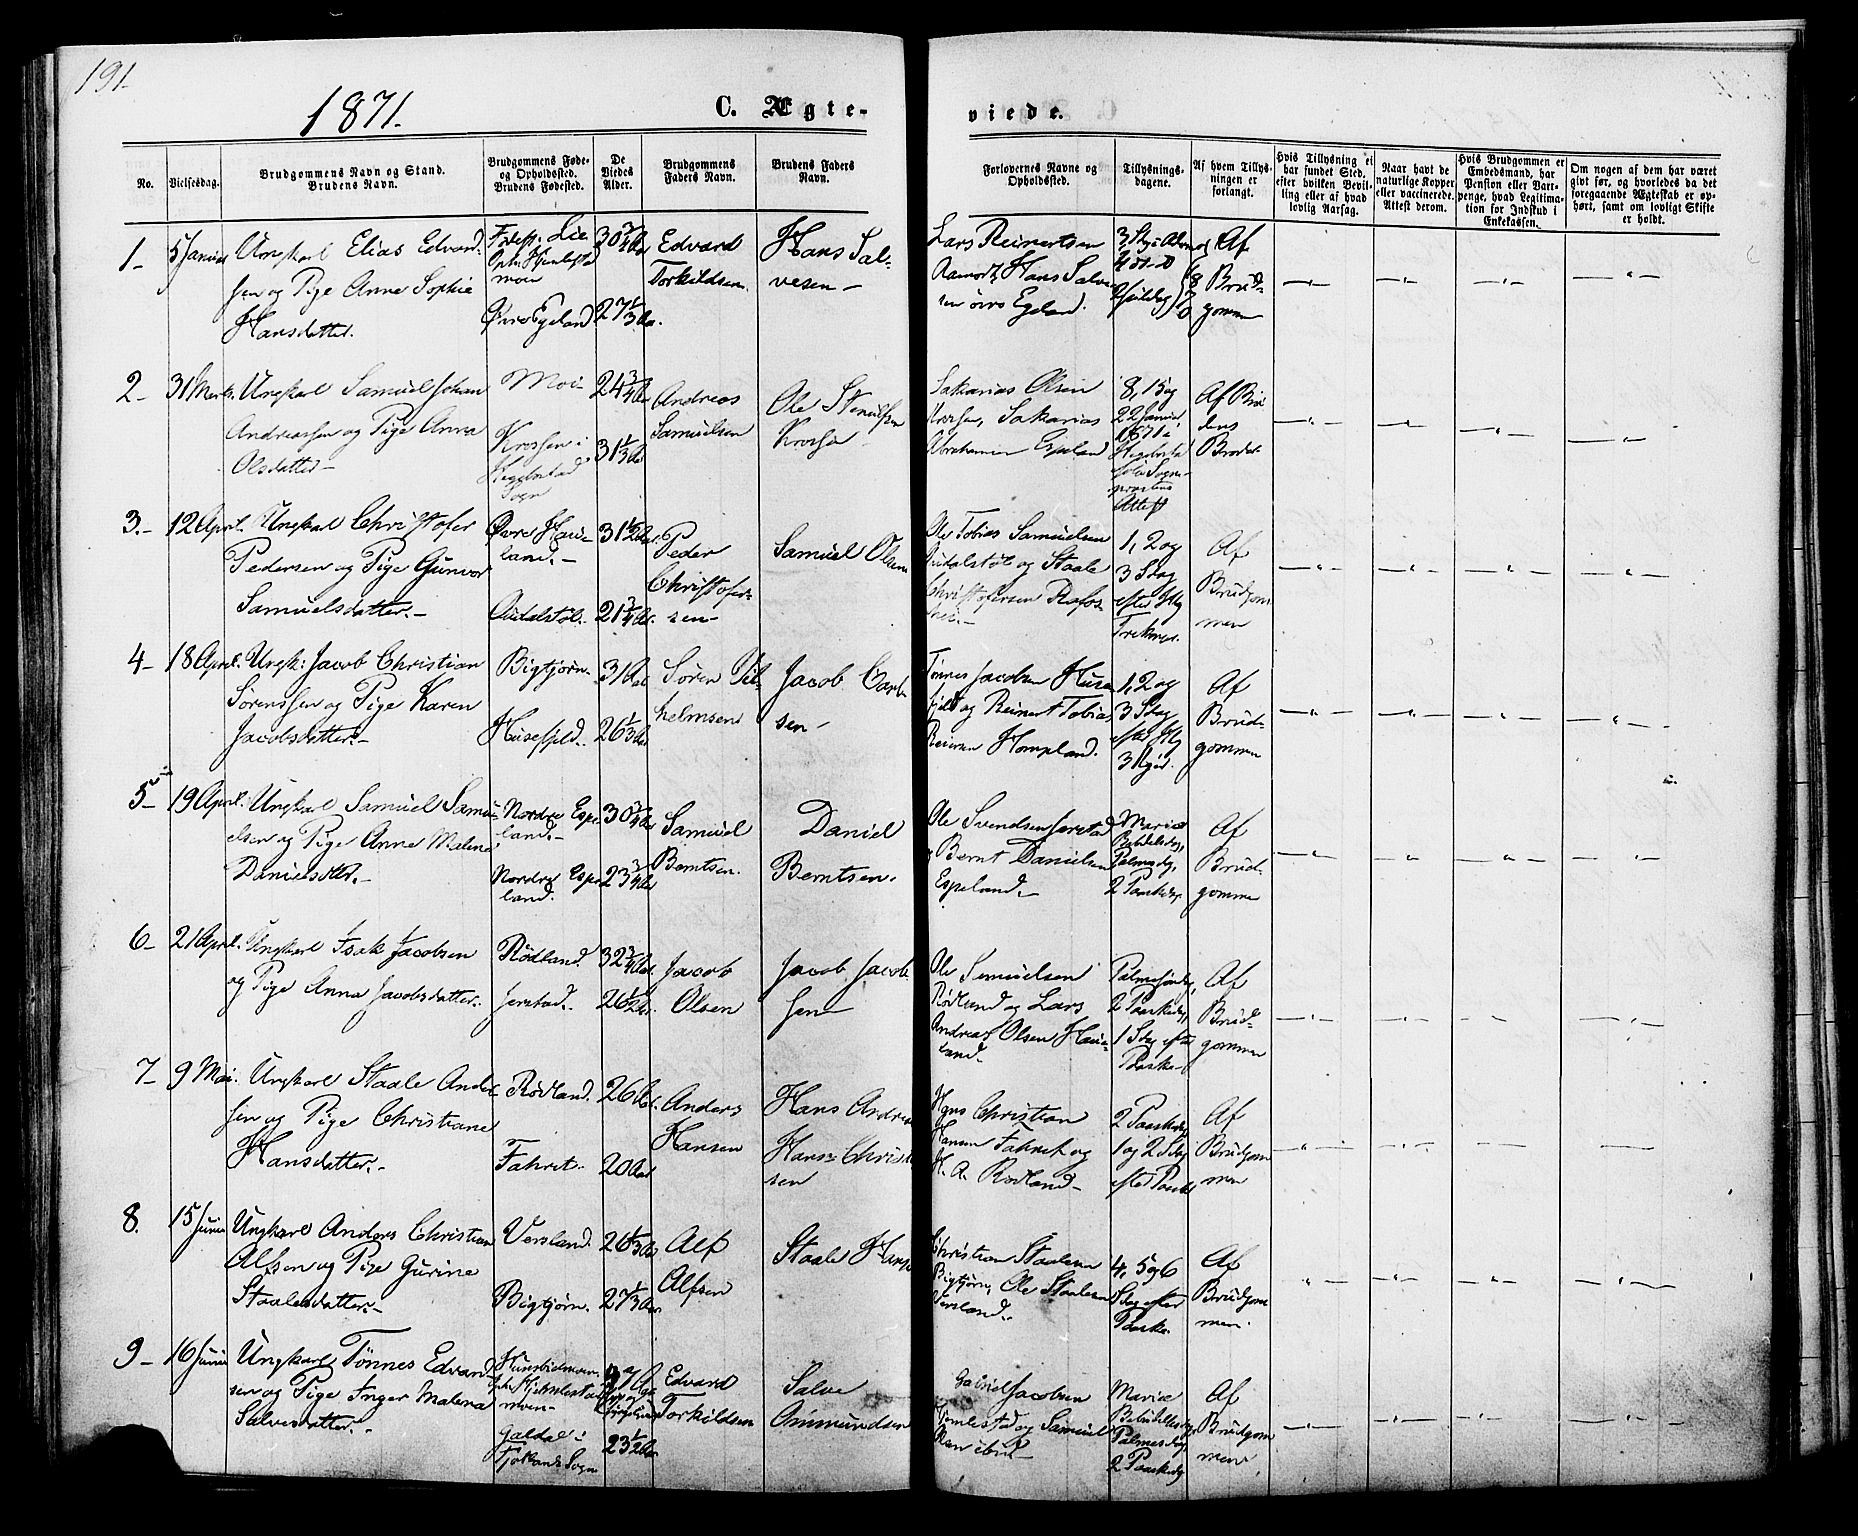 191.
1871.
C. Ægte-
viede.
No.
Vielsesdag.
Brudgommens Navn og Stand.
Brudens Navn.
Brudgommens Føde-
og Opholdssted.
Brudens Fødested.
De
Viedes
Alder.
Brudgommens
Faders Navn.
Brudens Faders
Navn.
Forlovernes Navne og
Opholdssted.
Tillysnings-
dagene.
Af hvem Tillys-
ningen er
forlangt.
Hvis Tillysning ei
har fundet Sted,
efter hvilken Bevil-
ling eller af hvad
lovlig Aarsag.
Naar havt de
naturlige Kopper
eller vaccinerede.
Attest derom.
Hvis Brudgommen er
Embedsmand, har
Pension eller Vart-
penge, hvad Legitima-
tion for Indskud i
Enkekassen.
Om nogen af dem har været
givt før, og hvorledes da det
foregaaende Ægteskab er op-
hørt, samt om lovligt Skifte
er holdt.
1- 5 Januar
Ungkarl Elias Edvard-
sen og Pige Anne Sophie
Hansdatter.
Lie
moen
Øvre Egeland
30 3/4 Aar
27 1/3 Aar.
Edvard
Torkildsen.
Hans Sal-
vesen-
Lars Reinertsen
Hans Salve-
sen øvre Egeland.
Af
Brud-
gommen
2- 31 Marts.
Ungkarl Samuel Johan
Andreassen og Pige Anna
Olsdatter-
Moi-
Krossen i
Hegebostad
Sogn
24 3/4 Aar
31 1/3 Aar
Andreas
Samuelsen
Ole Stenersen
Krossen
Sakarias Olsen
Krossen, Sakarias
Abrahamsen Espeland
8, 15 og
22 Januar
1871 i
Attest
Af Bru-
dens
Broder
3.- 12 April.
Ungkarl Christofer
Pedersen og Pige Gunvor
Samuelsdatter.-
Øvre Hau-
land.-
Audalstøl.-
31 1/2 Aar.
21 3/4 Aar.
Peder
Christofer-
sen-
Samuel Olsen
Ole Tobias Samuelsen
Audalstøl og Staale
Christofersen
1, 2 og
3 Sdag
efter Hlg
Trekonger.
Af
Brudgom
men
4- 18 April.
Ungk: Jacob Christian
Sørenssen og Pige Karen
Jacobsdatter.-
Bigtjørn.-
Husefjeld.-
31 Aar
26 1/3 Aar
Søren Vil-
helmsen
Jacob Carl-
sen-
Tønnes Jacobsen Huse-
fjeld og Reinert Tobias
Hompland.
1, 2 og
3 Sdag
efter Hlg
3 Kgr.
Af
Brud-
gommen
5- 19 April.
Ungkarl Samuel Samu-
elsen og Pige Anne Malene
Danielsdtr.-
Nordre Espe-
land.-
Nordre Espe-
land.
30 3/4 Aar
23 3/4 Aar
Samuel
Berntsen.
Daniel
Berntsen.
Ole Svendsen Jerstad
Bernt Danielsen
Espeland.-
Mariæ
Palmesdg,
2 Paaskedg.
Af
Brud-
gommen
6- 21 April.
Ungkarl Isak Jacobsen
og Pige Anna Jacobsdatter.
Rødland.
Jerstad.-
32 3/4 Aar.
26 1/2 Aar.
Jacob
Olsen
Jacob Jacob-
sen
Ole Samuelsen
Rødland og Lars
Andreas Olsen Hau-
land.
2 Paaskedg,
1 Sdg efter
Paaske-
Af
Brud-
gommen
7- 9 Mai.
Ungkarl Staale Ander-
sen og Pige Christiane
Hansdatter.-
Rødland.
Fahret.-
26 Aar.
20 Aar
Anders
Hansen
Hans Andreas
Hans Christi-
sen
Hans Christian
Hansen Fahret og
H. A. Rødland-
2 Paaskedg
1 og 2 Sdg
efter Paaske
Af
Brudgom
men
8. 15 Juni
Ungkarl Anders Christian
Alfsen og Pige Gurine
Staalesdatter.-
Versland.
Bigtjørn.-
26 1/3 Aar
27 1/3 Aar.
Alf
Alfsen
Staale Hans
Christian Staalesen
Bigtjørn, Ole Staalesen
Versland.-
4, 5 og 6
Sdag efter
Paaske.
Af
Brudgom
men.
9- 16 Juni
Ungkarl Tønnes Edvard-
sen og Pige Inger Malena
Salvesdatter.-
moen-
Galdal i
Fjotlands Sogn
23 1/2 Aar
Edvard
Torkildsen
Salve
Ommundsen
Gabriel Jacobsen
og Samuel
Mariæ
Palmesdag,
2 Paaskedg
Af
Brudgom
men